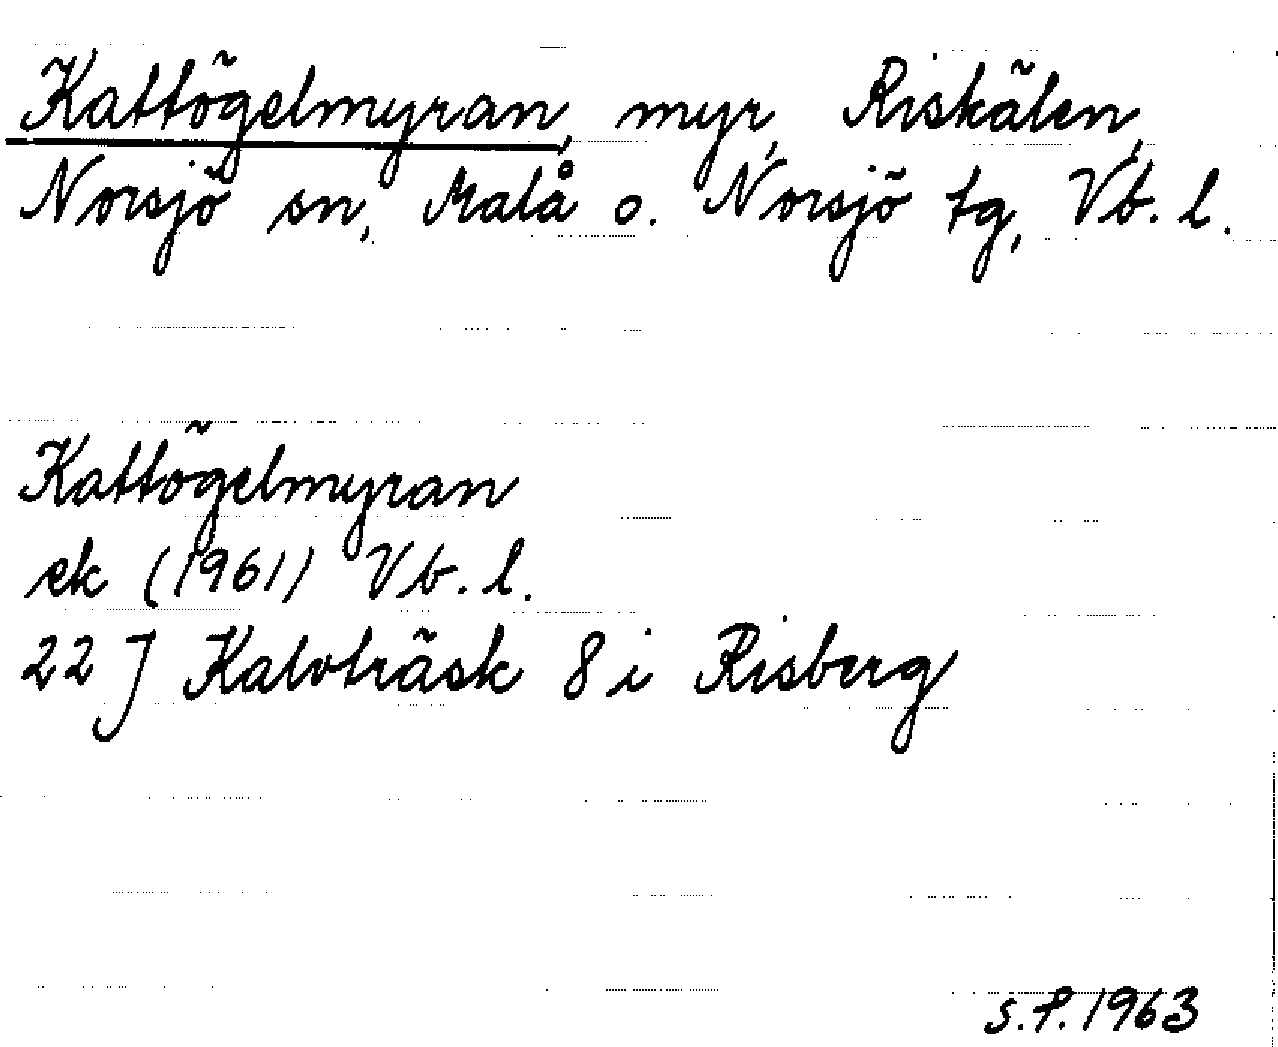 Kattögelmyran, myr, Riskälen,
Norsjö sn, Malå o. Norsjö tg, Vb. l.
Kattögelmyran
ek (1961) Vb. l.
22 J Kalvträsk 8 i Risberg
S.P. 1963